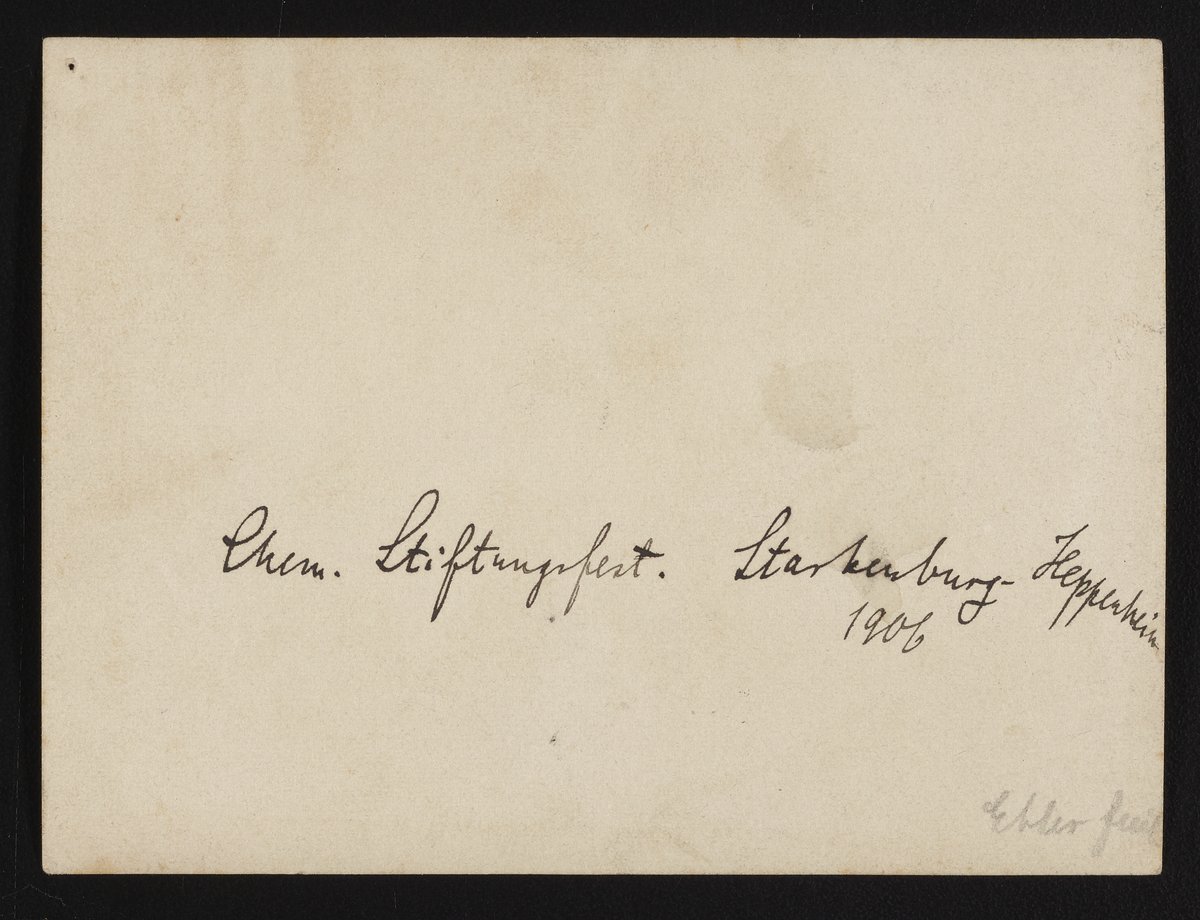 Chem. Stiftungsfest. Starkenburg- Heppenheim
1906